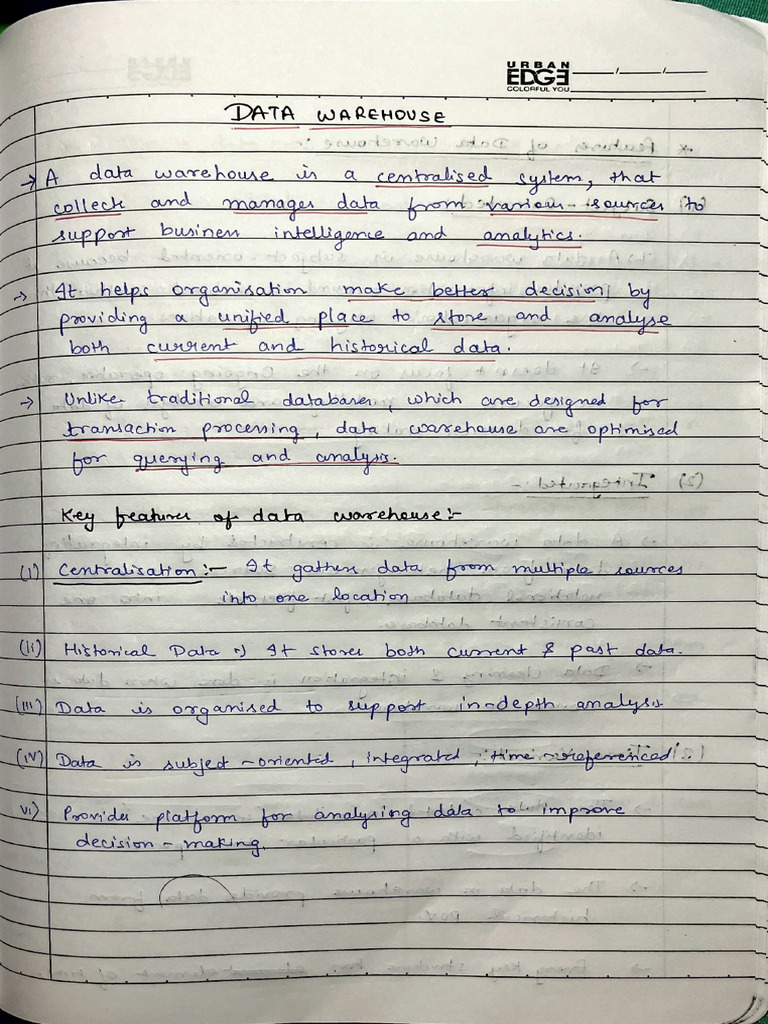 URBAN
EDGE
COLORFUL YOU
DATA WAREHOUSE
→ A data warehouse is a centralised system, that
collect and manages data from various sources to
support business intelligence and analytics.
→ It helps organisation make better decision by
providing a unified place to store and analyse
both current and historical data.
→ Unlike traditional databases, which are designed for
transaction processing, data warehouse are optimised
for querying and analysis.
Key features of data warehouse:-
(i) Centralisation:- It gathers data from multiple sources
into one location
(ii) Historical Data :) It stores both current & past data.
(iii) Data is organised to support in-depth analysis
(iv) Data is subject-oriented, integrated, time-referenced.
vi) Provides platform for analysing data to improve
decision-making.